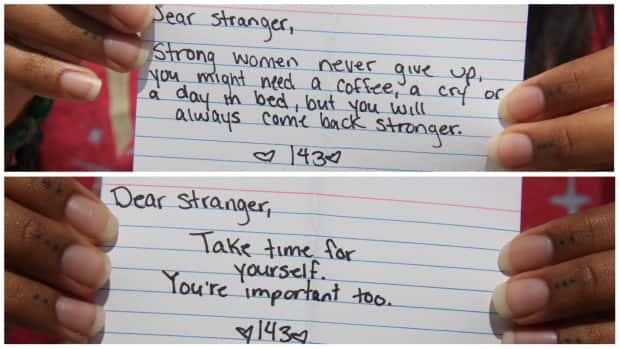 Dear stranger,
Strong women never give up,
you might need a coffee, a cry or
a day in bed, but you will
always come back stronger.
♡ 143♡
Dear stranger,
Take time for
yourself.
You're important too.
♡143♡